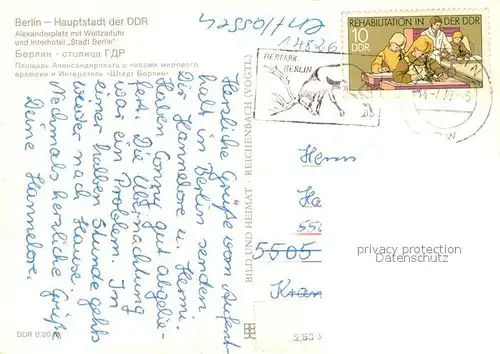 Berlin – Hauptstadt der DDR
Alexanderplatz mit Weltzeituhr
und Interhotel „Stadt Berlin"
Берлин - столица ГДР
Площадь Александерплатц с часами мирового
времени и Интеротель «Штадт Берлин»
Herzliche Grüße vom Aufent-
halt in Berlin senden
Dir Hannelore u. Heini.
Haben Conny gut abgelie-
fert. Die Übernachtung
war ein Problem. In
einer halben Stunde gehts
wieder nach Hause.
Nochmals herzliche Grüße
Deine Hannelore.
BDR 0,20
BILD UND HEIMAT · REICHENBACH (VOGTL)
14826
TIERPARK
BERLIN
REHABILITATION IN DER DDR
10
DDR
Herrn
Ha
556
5505
Kran
privacy protection
Datenschutz